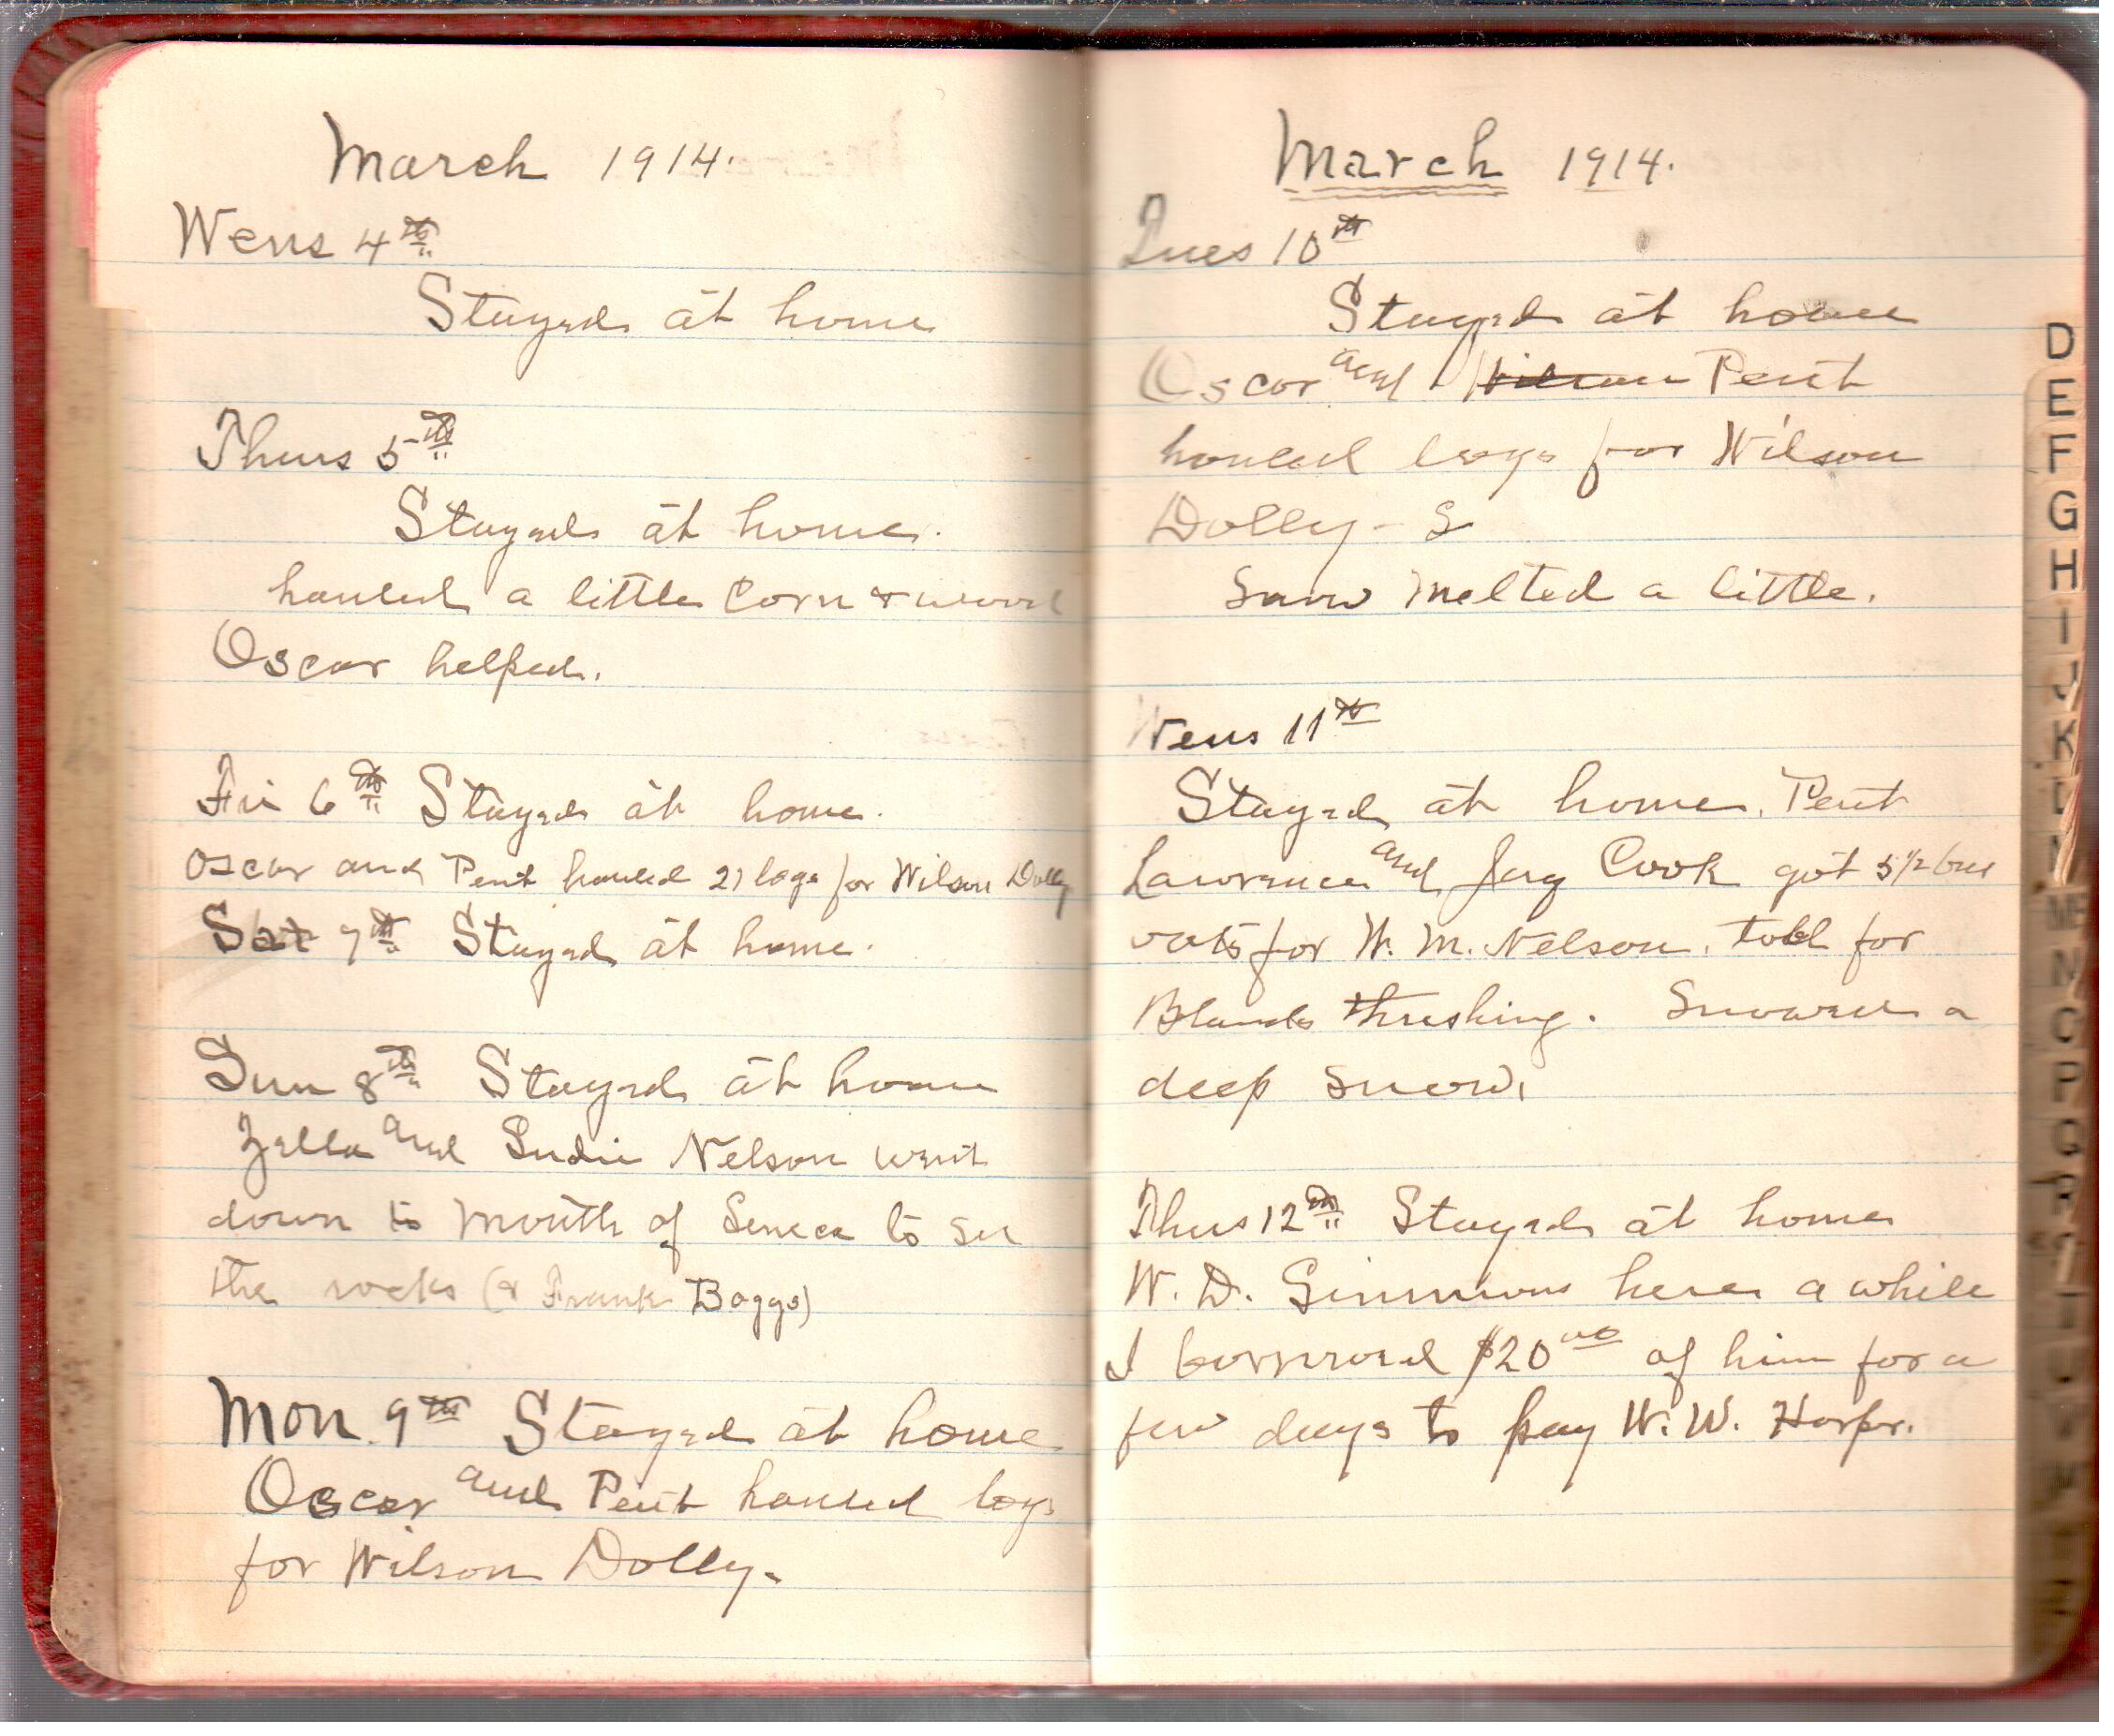 March 1914.
Wens 4th
Stayed at home
Thurs 5th
Stayed at home.
hauled a little corn & wood
Oscar helped.
Fri 6th Stayed at home.
Oscar and Pent hauled 21 logs for Wilson Dolly
Sat 7th Stayed at home.
Sun 8th Stayed at home
Zella and Sudie Nelson went
down to Mouth of Seneca to see
the rocks (& Frank Boggs)
Mon 9th Stayed at home
Oscar and Pent hauled logs
for Wilson Dolly.
March 1914.
Tues 10th
Stayed at home
Oscar and Wilson Pent
hauled logs for Wilson
Dolly - S
Snow melted a little.
Wens 11th
Stayed at home. Pent
Lawrence and Jay Cook got 5 1/2 bus
oats for W. M. Nelson. for
Blands threshing. Snowed a
deep snow.
Thus 12th Stayed at home
W. D. Simmons here a while
I borrowed $20 00 of him for a
few days to pay W. W. Harpr.
D
E
F
G
H
I
J
K
L
M
N
O
P
Q
R